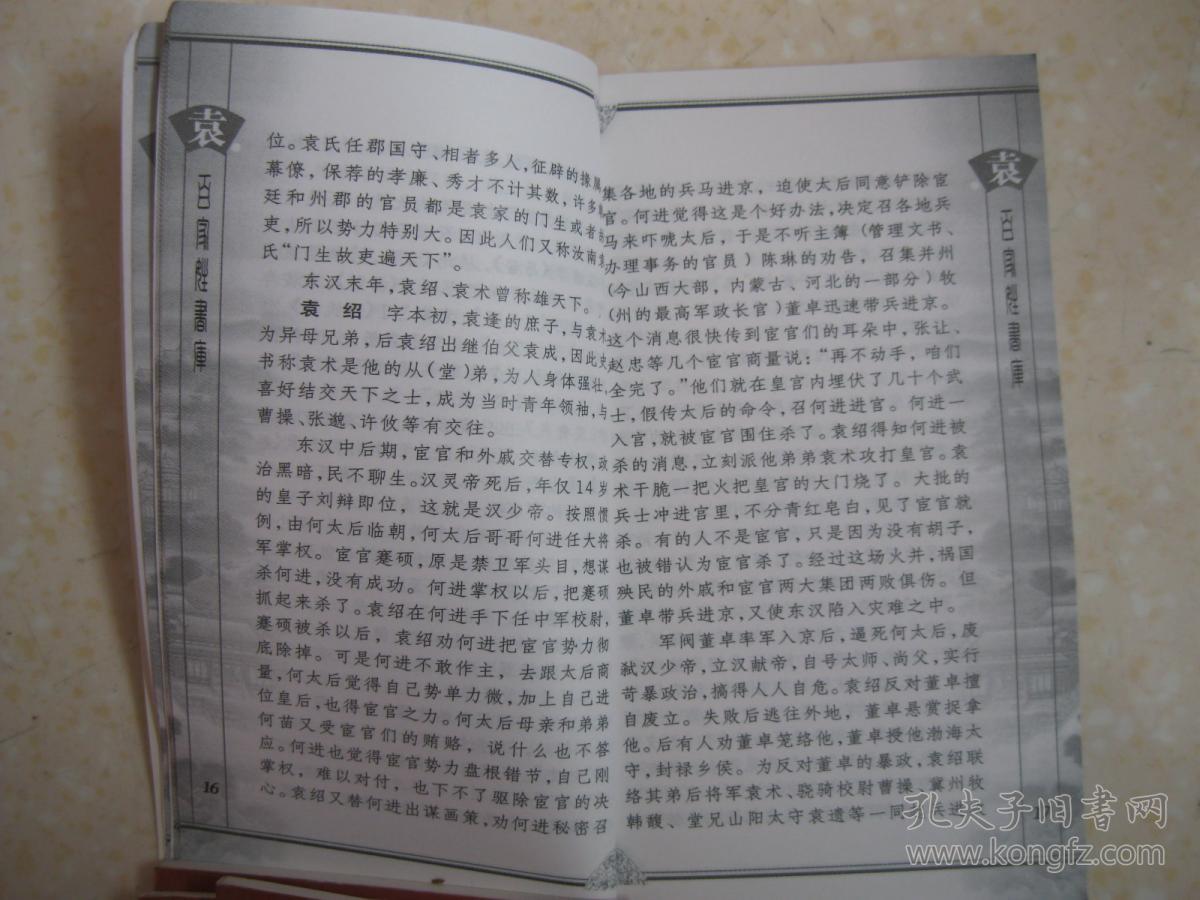 袁
百家姓書庫
位。袁氏任郡国守、相者多人，征辟的掾属
幕僚，保荐的孝廉、秀才不计其数，许多
廷和州郡的官员都是袁家的门生或者
吏，所以势力特别大。因此人们又称汝南袁
氏“门生故吏遍天下”。
东汉末年，袁绍、袁术曾称雄天下。
袁绍 字本初，袁逢的庶子，与袁术
为异母兄弟，后袁绍出继伯父袁成，因此史
书称袁术是他的从（堂）弟，为人身体强壮，
喜好结交天下之士，成为当时青年领袖，与
曹操、张邈、许攸等有交往。
东汉中后期，宦官和外戚交替专权，政
治黑暗，民不聊生。汉灵帝死后，年仅14岁
的皇子刘辩即位，这就是汉少帝。按照惯
例，由何太后临朝，何太后哥哥何进任大将
军掌权。宦官蹇硕，原是禁卫军头目，想谋
杀何进，没有成功。何进掌权以后，把蹇硕
抓起来杀了。袁绍在何进手下任中军校尉，
蹇硕被杀以后，袁绍劝何进把宦官势力彻
底除掉。可是何进不敢作主，去跟太后商
量，何太后觉得自己势单力微，加上自己进
位皇后，也得宦官之力。何太后母亲和弟弟
何苗又受宦官们的贿赂，说什么也不答
应。何进也觉得宦官势力盘根错节，自己刚
掌权，难以对付，也下不了驱除宦官的决
心。袁绍又替何进出谋画策，劝何进秘密召
16
袁
百家姓書庫
集各地的兵马进京，迫使太后同意铲除宦
官。何进觉得这是个好办法，决定召各地兵
马来吓唬太后，于是不听主簿（管理文书、
办理事务的官员）陈琳的劝告，召集并州
（今山西大部，内蒙古、河北的一部分）牧
（州的最高军政长官）董卓迅速带兵进京。
这个消息很快传到宦官们的耳朵中，张让、
赵忠等几个宦官商量说：“再不动手，咱们
全完了。”他们就在皇宫内埋伏了几十个武
士，假传太后的命令，召何进进宫。何进一
入宫，就被宦官围住杀了。袁绍得知何进被
杀的消息，立刻派他弟弟袁术攻打皇宫。袁
术干脆一把火把皇宫的大门烧了。大批的
兵士冲进宫里，不分青红皂白，见了宦官就
杀。有的人不是宦官，只是因为没有胡子，
也被错认为宦官杀了。经过这场火并，祸国
殃民的外戚和宦官两大集团两败俱伤。但
董卓带兵进京，又使东汉陷入灾难之中。
军阀董卓率军入京后，逼死何太后，废
弑汉少帝，立汉献帝，自号太师、尚父，实行
苛暴政治，搞得人人自危。袁绍反对董卓擅
自废立。失败后逃往外地，董卓悬赏捉拿
他。后有人劝董卓笼络他，董卓授他渤海太
守，封禄乡侯。为反对董卓的暴政，袁绍联
络其弟后将军袁术、骁骑校尉曹操、冀州牧
韩馥、堂兄山阳太守袁遗等一同
孔夫子旧书网
www.kongfz.com